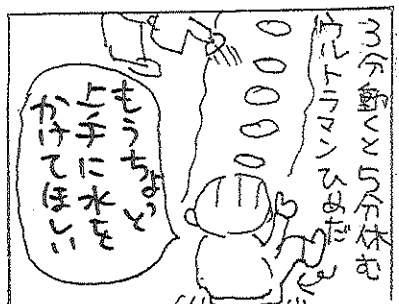 3分動くと5分休む
ウルトラマンひめだ
もうちょっと
上手に水を
かけてほしい